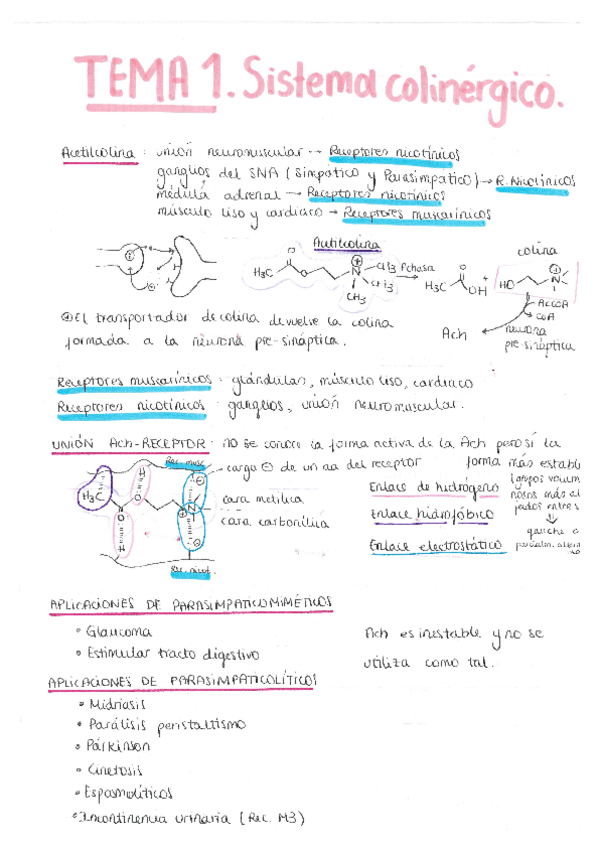 TEMA 1. Sistema colinérgico.
Acetilcolina : unión neuromuscular → Receptores nicotínicos
ganglios del SNA (Simpático y Parasimpático) → R. Nicotínicos
médula adrenal → Receptores nicotínicos
músculo liso y cardiaco → Receptores muscarínicos
Acetilcolina
colina
H3C O O N CH3 CH3 CH3 Achasa H3C O OH + HO N
ACCOA
COA
Ach
neurona
pre-sináptica
El transportador de colina devuelve la colina
formada a la neurona pre-sináptica.
Receptores muscarínicos : glándulas, músculo liso, cardiaco
Receptores nicotínicos : ganglios, unión neuromuscular.
UNIÓN Ach-RECEPTOR : no se conoce la forma activa de la Ach pero sí la
forma más establ
Rec. musc
carga ⊖ de un aa del receptor
cara metílica
cara carbonílica
H3C
Rec. nicot.
Enlace de hidrógeno
Enlace hidrofóbico
Enlace electrostático
nosos más al
jados entre s
gauche o
APLICACIONES DE PARASIMPATICOMIMÉTICOS
• Glaucoma
• Estimular tracto digestivo
Ach es inestable y no se
utiliza como tal.
APLICACIONES DE PARASIMPATICOLÍTICOS
• Midriasis
• Parálisis peristaltismo
• Párkinson
• Cinetosis
• Espasmolíticos
• Incontinencia urinaria (Rec. M3)